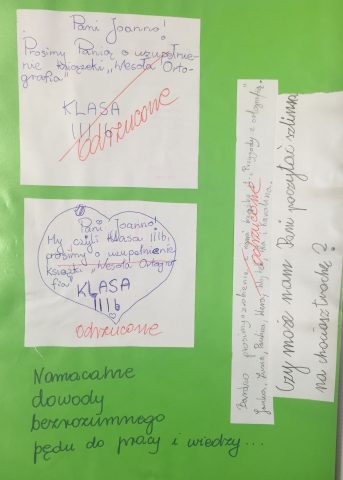 Pani Joanno!
Prosimy Panią o uzupełnie-
nie książeczki „Wesoła Orto-
grafia"
KLASA
III b
odrzucone
Pani Joanno!
My, czyli klasa IIIb,
prosimy o uzupełnienie
książki „Wesoła Ortogra-
fia"
KLASA
III b
odrzucone
Bardzo prosimy o zrobienie „Przygody z ortografią".
Hania,
odrzucone
czy może nam Pani poczytać
na chociasz trochę?
Namacalne
dowody
bezrozumnego
pędu do pracy i wiedzy...